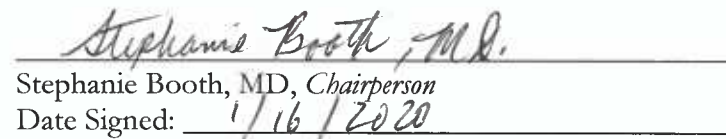 Stephanie Booth, MD.
Stephanie Booth, MD, Chairperson
Date Signed: 1/16/2020